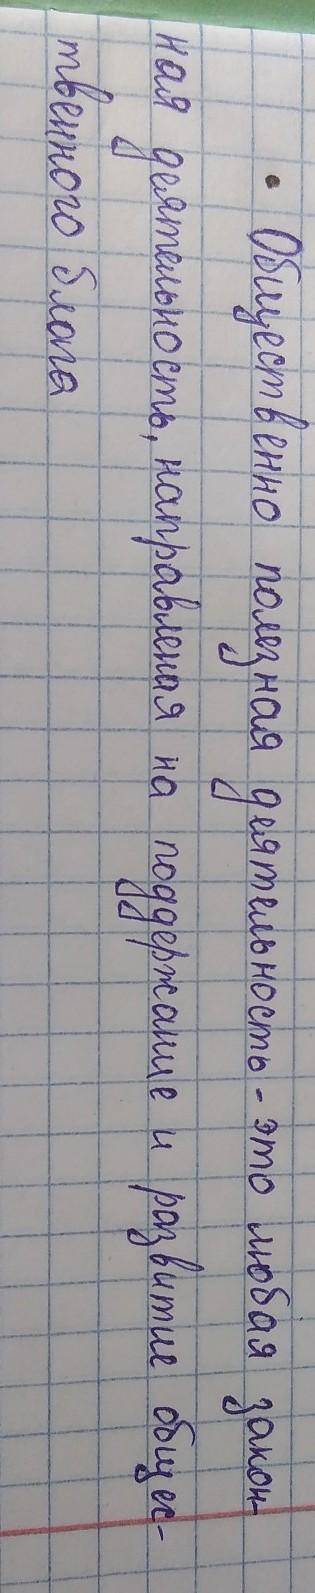 • Общественно полезная деятельность - это любая закон-
ная деятельность, направленая на поддержание и развитие общес-
твенного блага